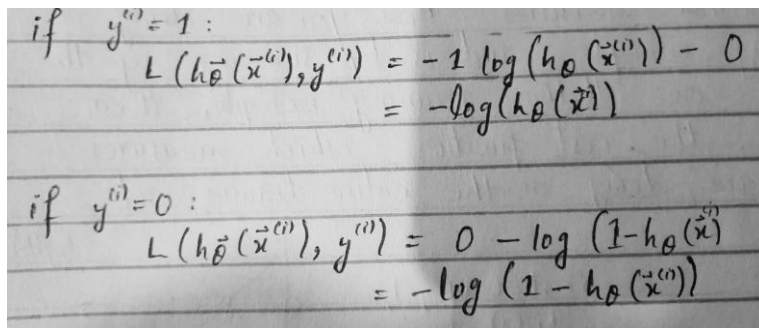 if y⁽ⁱ⁾ = 1 :
L (h_θ⃗ (x⃗⁽ⁱ⁾), y⁽ⁱ⁾) = - 1 log (h_θ (x⃗⁽ⁱ⁾)) - 0
= -log (h_θ (x⃗⁽ⁱ⁾))
if y⁽ⁱ⁾ = 0 :
L (h_θ⃗ (x⃗⁽ⁱ⁾), y⁽ⁱ⁾) = 0 - log (1-h_θ (x⃗⁽ⁱ⁾)
= -log (1 - h_θ (x⃗⁽ⁱ⁾))